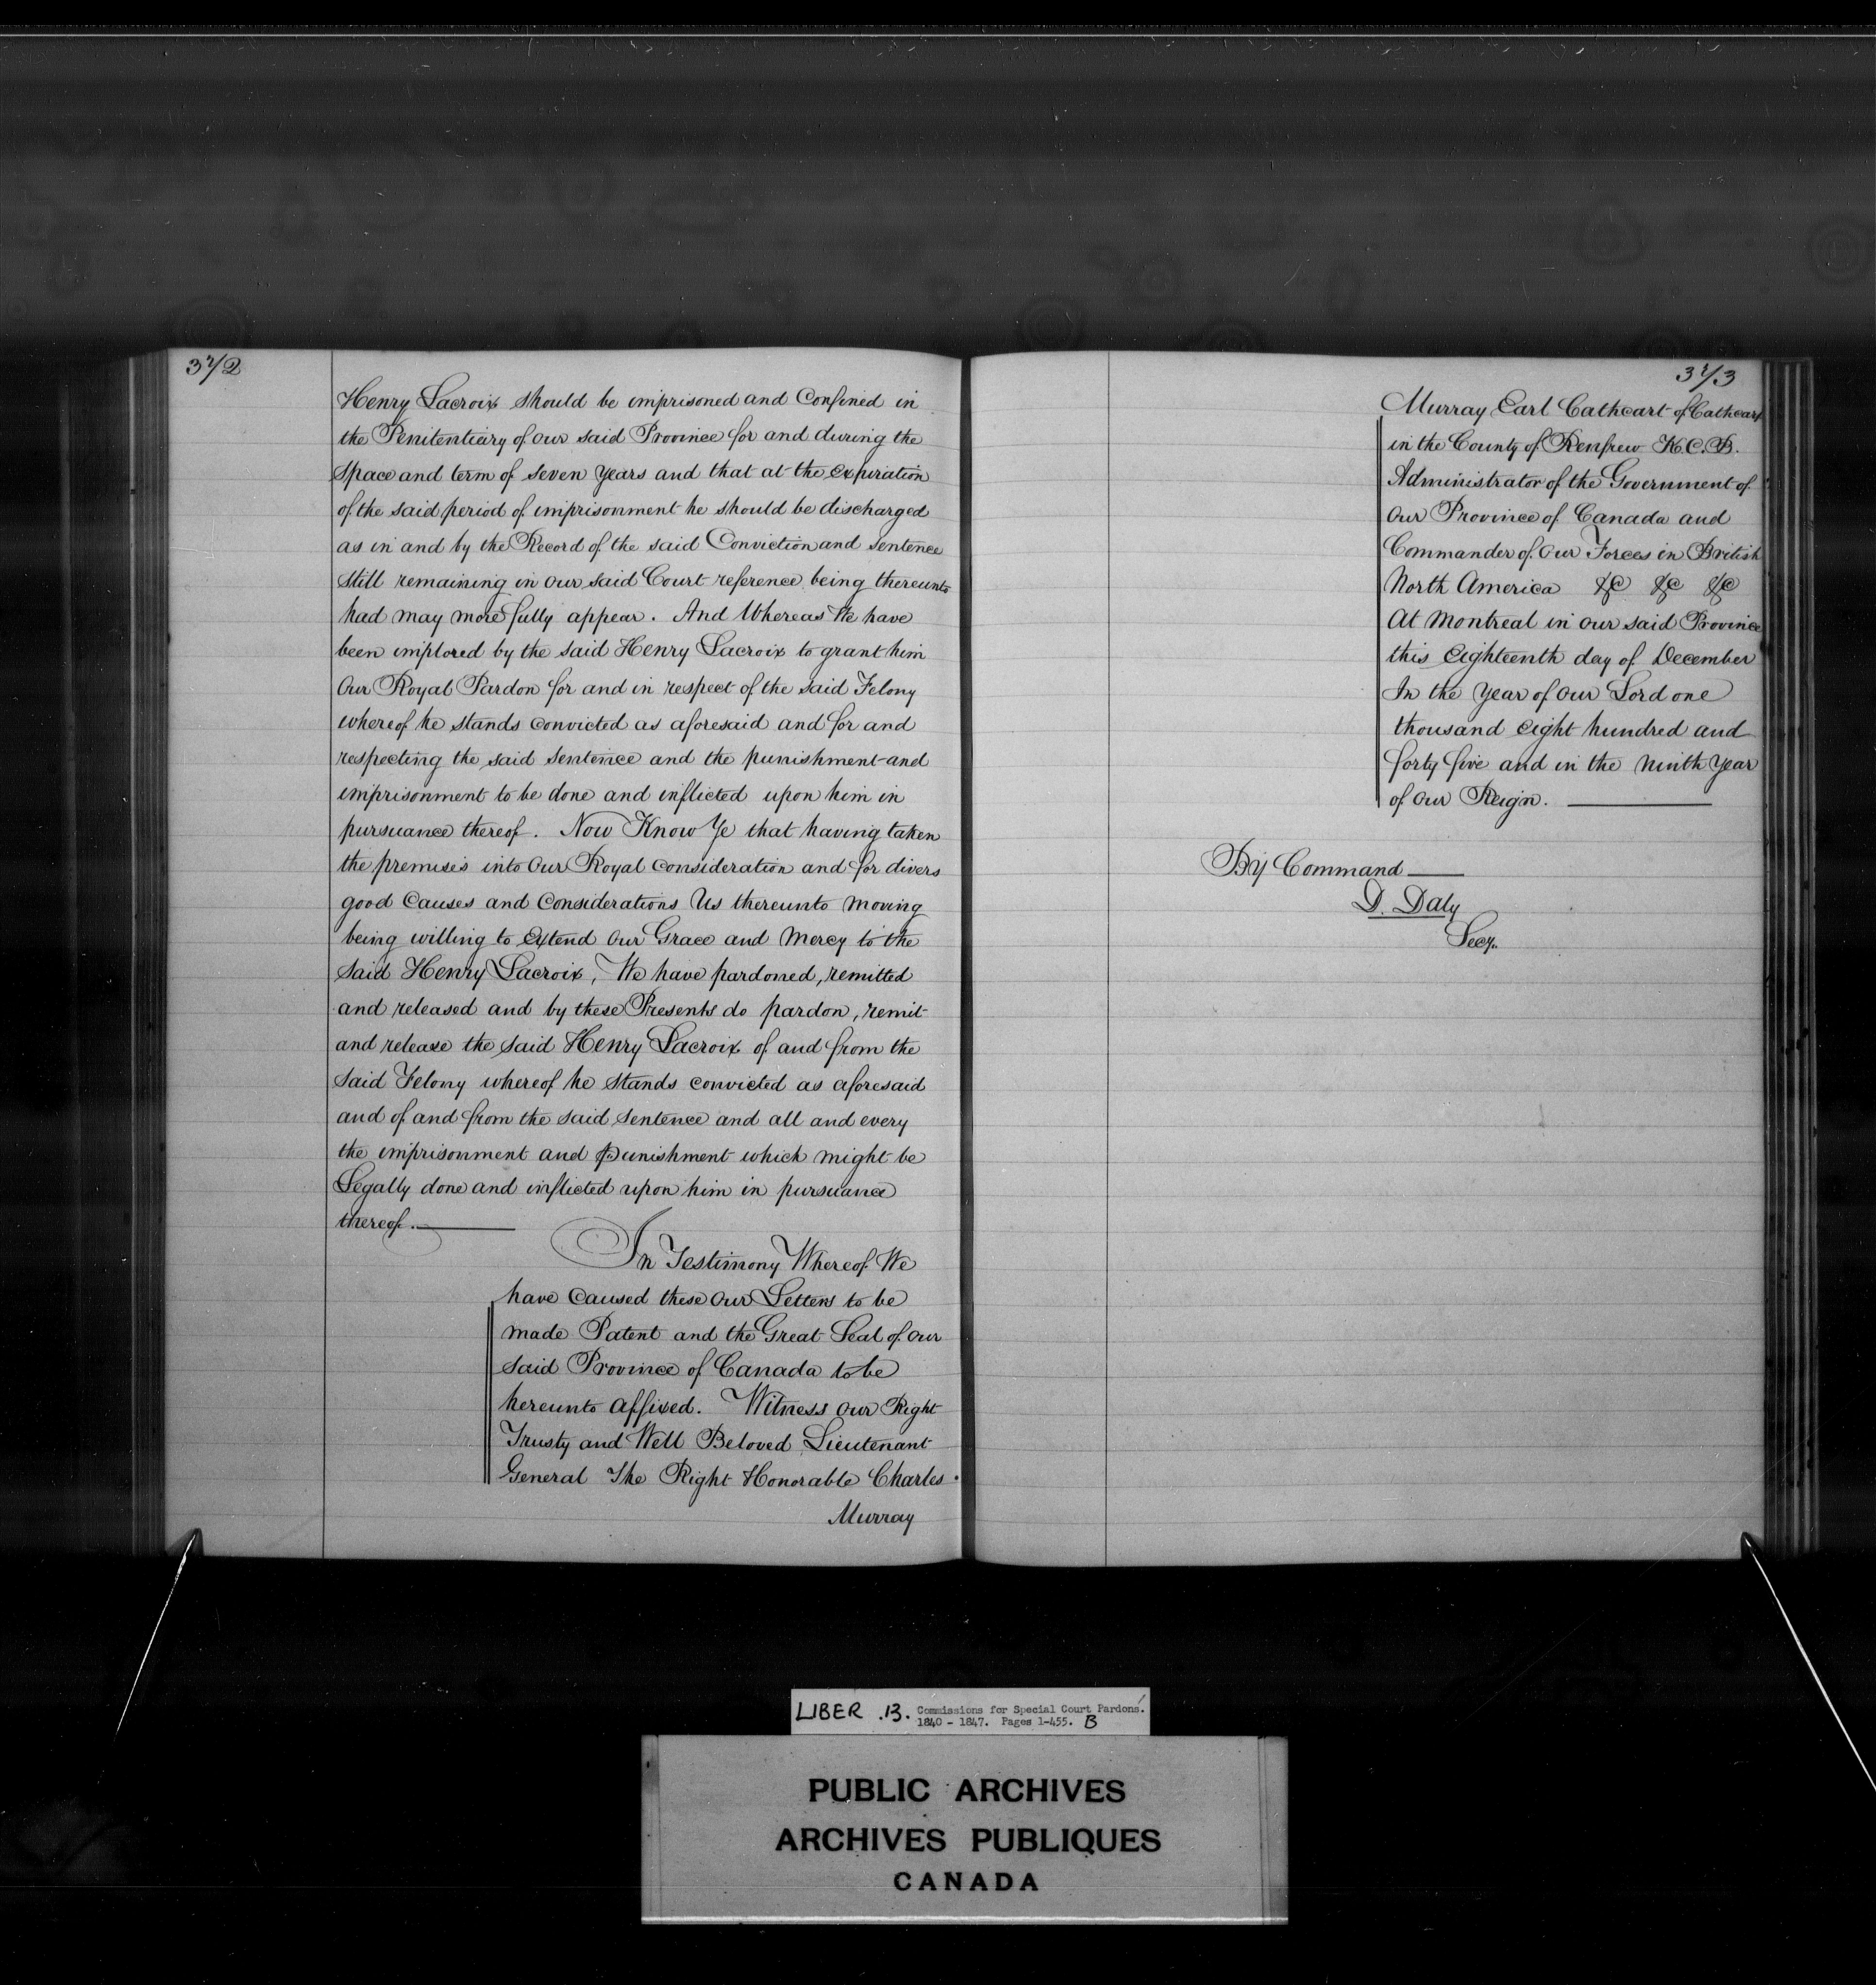 372
Henry Lacroix should be imprisoned and Confined in
the Penitentiary of our said Province for and during the
Space and term of seven years and that at the expiration
of the said period of imprisonment he should be discharged
as in and by the Record of the said Conviction and sentence
still remaining in our said Court reference being thereunto
had may more fully appear. And Whereas We have
been implored by the said Henry Lacroix to grant him
Our Royal Pardon for and in respect of the said Felony
whereof he stands convicted as aforesaid and for and
respecting the said sentence and the punishment and
imprisonment to be done and inflicted upon him in
pursuance thereof. Now Know Ye that having taken
the premises into Our Royal consideration and for divers
good Causes and Considerations Us thereunto moving
being willing to extend Our Grace and Mercy to the
said Henry Lacroix, We have pardoned, remitted
and released and by these Presents do pardon, remit
and release the said Henry Lacroix of and from the
said Felony whereof he stands convicted as aforesaid
and of and from the said sentence and all and every
the imprisonment and Punishment which might be
Legally done and inflicted upon him in pursuance
thereof.
In Testimony Whereof We
have Caused these Our Letters to be
made Patent and the Great Seal of Our
said Province of Canada to be
hereunto affixed. Witness Our Right
Trusty and Well Beloved Lieutenant
General The Right Honorable Charles
Murray
373
Murray Earl Cathcart of Cathcart
in the County of Renfrew K.C.B.
Administrator of the Government of
Our Province of Canada and
Commander of Our Forces in British
North America &c &c &c
At Montreal in our said Province
this Eighteenth day of December
In the Year of Our Lord one
thousand eight hundred and
forty five and in the Ninth Year
of Our Reign.
By Command
D. Daly
Secy.
LIBER .13. Commissions for Special Court Pardons.
1840 - 1847. Pages 1-455. B
PUBLIC ARCHIVES
ARCHIVES PUBLIQUES
CANADA